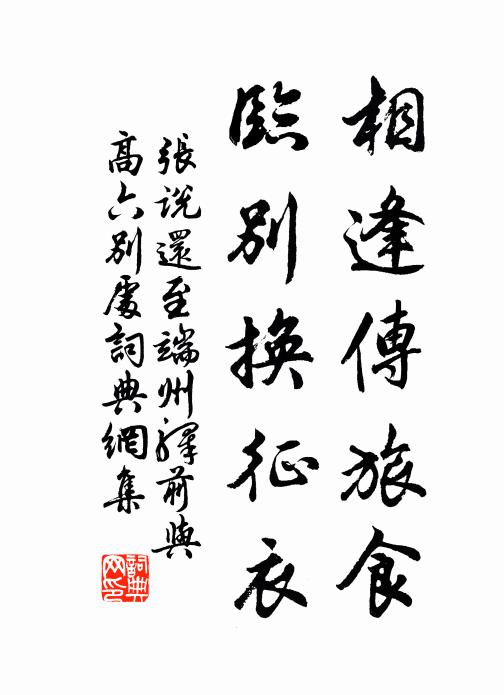 相逢傳旅食
臨別換征衣
張說還至端州驛前與
高六別處詞典網集
詞典
网印